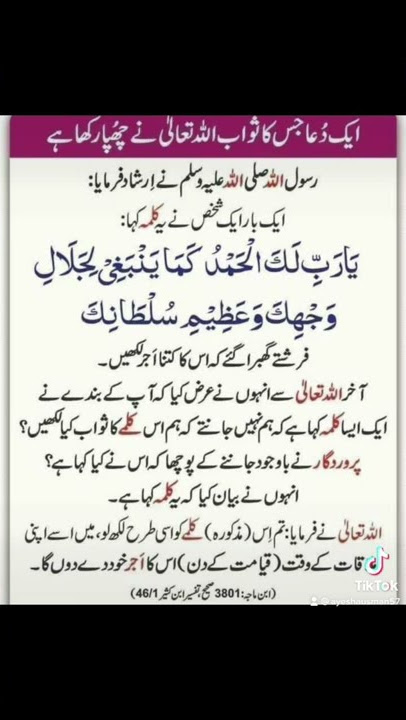 ایک دُعا جس کا ثواب اللہ تعالیٰ نے چھپا رکھا ہے
رسول اللہ صلی اللہ علیہ وسلم نے اِرشاد فرمایا:
ایک بار ایک شخص نے یہ کلمہ کہا:
یَارَبِّ لَكَ الْحَمْدُ كَمَا يَنْبَغِیْ لِجَلَالِ
وَجْهِكَ وَعَظِيْمِ سُلْطَانِكَ
فرشتے گھبرا گئے کہ اس کا کتنا اَجر لکھیں۔
آخر اللہ تعالیٰ سے انہوں نے عرض کیا کہ آپ کے بندے نے
ایک ایسا کلمہ کہا ہے کہ ہم نہیں جانتے کہ ہم اس کلمے کا ثواب کیا لکھیں؟
پروردگار نے باوجود جاننے کے پوچھا کہ اس نے کیا کہا ہے؟
انہوں نے بیان کیا کہ یہ کلمہ کہا ہے۔
اللہ تعالیٰ نے فرمایا: تم اِس (مذکورہ) کلمے کو اسی طرح لکھ لو، میں اسے اپنی
قات کے وقت (قیامت کے دن) اس کا اَجر خود دے دوں گا۔
(ابن ماجہ: 3801 صحیح تفسیر ابن کثیر 46/1)
TikTok
@ayeshausman57